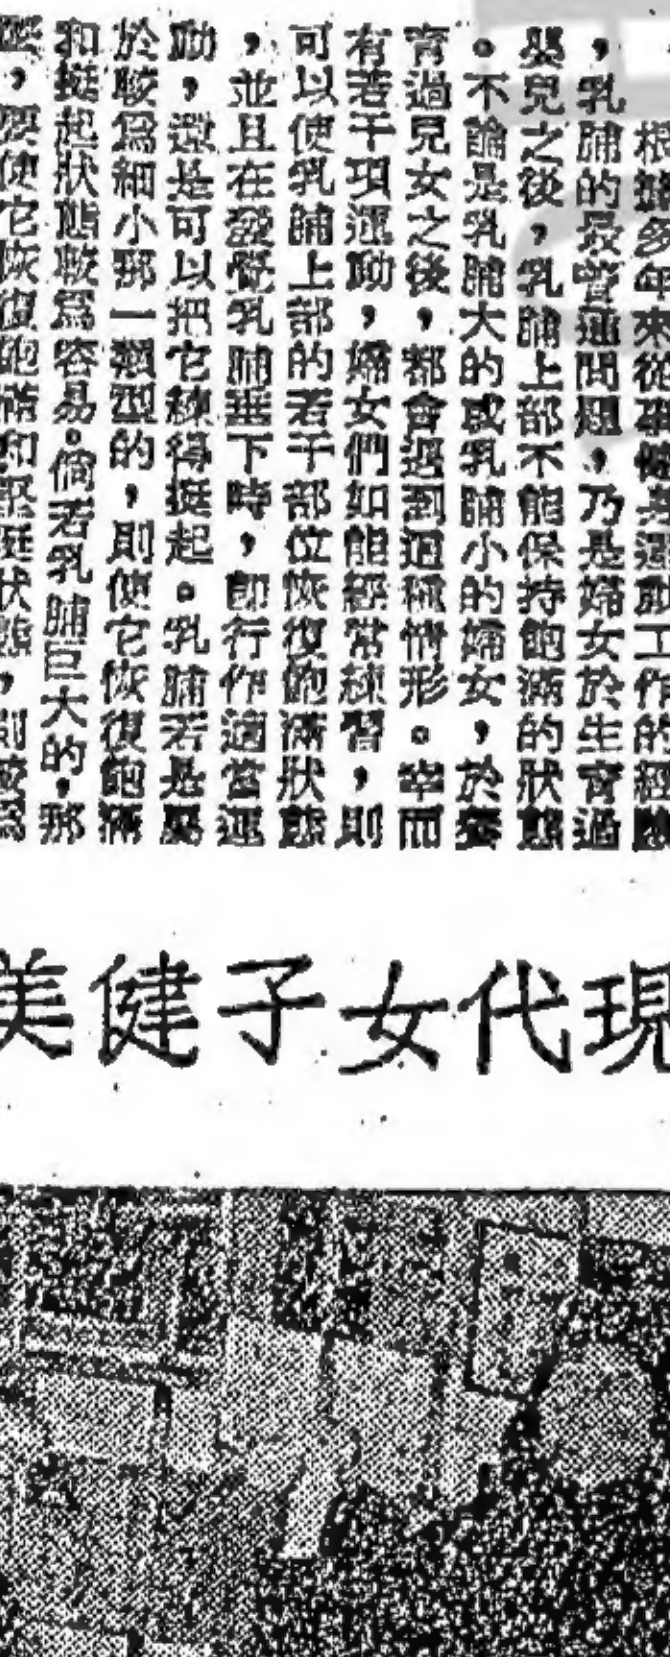 根據多年來從事健美運動工作的經驗
，乳脯的最普通問題，乃是婦女於生育過
嬰兒之後，乳脯上部不能保持飽滿的狀態
。不論是乳脯大的或乳脯小的婦女，於養
育過兒女之後，都會遇到這種情形。幸而
有若干項運動，婦女們如能經常練習，則
可以使乳脯上部的若干部位恢復飽滿狀態
，並且在發覺乳脯垂下時，即行作適當運
動，還是可以把它練得挺起。乳脯若是屬
於較爲細小那一類型的，則使它恢復飽滿
和挺起狀態較爲容易。倘若乳脯巨大的，那
，要使它恢復飽滿和堅挺狀態，則較爲
現代女子健美